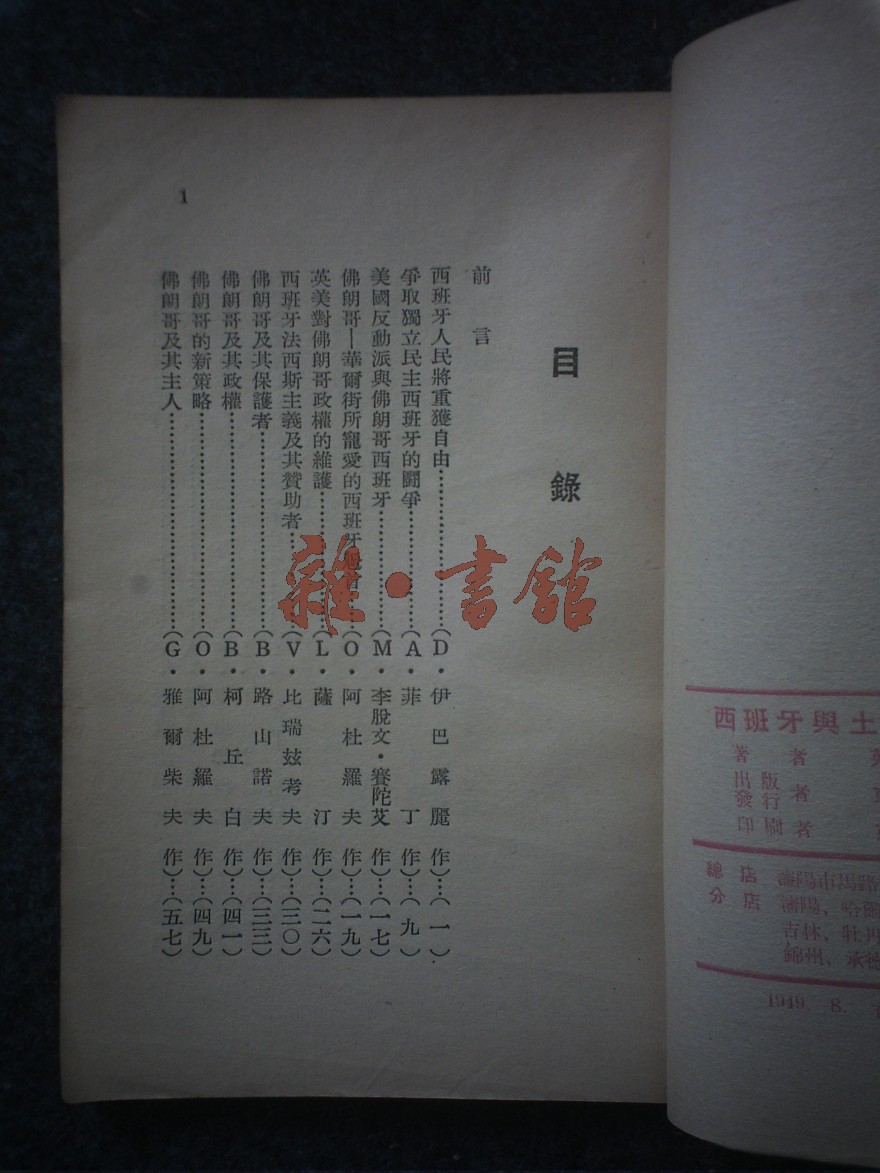 目錄
前言
西班牙人民將重獲自由……(D·伊巴露麗作)…(一)
爭取獨立民主西班牙的鬪爭……(A·菲丁作)…(九)
美國反動派與佛朗哥西班牙……(M·李脫文·賽陀艾作)…(一七)
佛朗哥—華爾街所寵愛的西班牙……(O·阿杜羅夫作)…(一九)
英美對佛朗哥政權的維護……(L·薩汀作)…(二六)
西班牙法西斯主義及其贊助者……(V·比瑞茲考夫作)…(三〇)
佛朗哥及其保護者……(B·路山諾夫作)…(三三)
佛朗哥及其政權……(B·柯丘白作)…(四一)
佛朗哥的新策略……(O·阿杜羅夫作)…(四九)
佛朗哥及其主人……(G·雅爾柴夫作)…(五七)
1
雜·書館
西班牙與土
著者
出版
發行者
印刷者
總店 瀋陽市馬路
分店 瀋陽、哈爾
吉林、牡丹
錦州、承德
1949. 8.